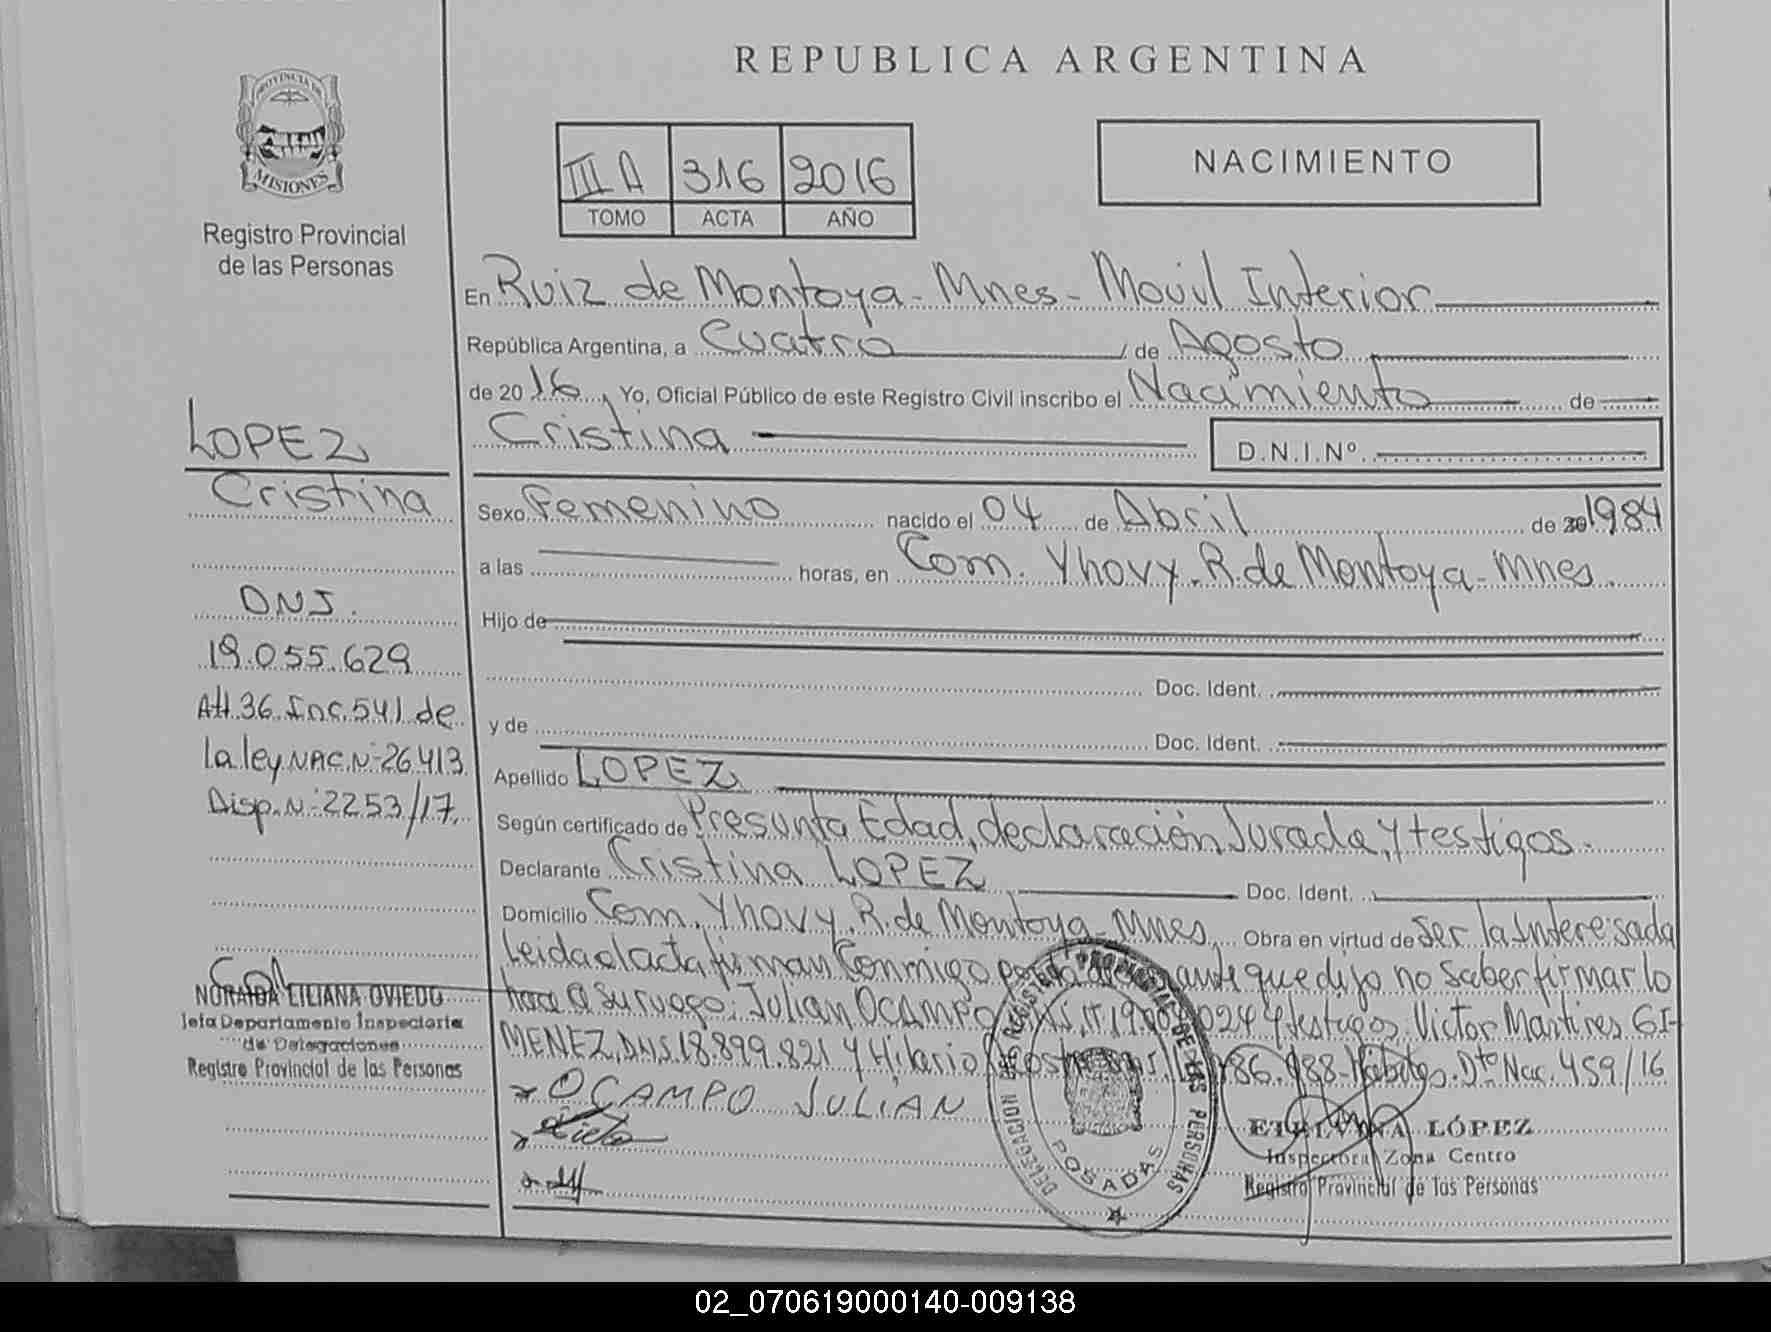 REPUBLICA ARGENTINA
PROVINCIA DE
MISIONES
Registro Provincial
de las Personas
III A 316 2016
TOMO ACTA AÑO
NACIMIENTO
En Ruiz de Montoya - Mnes - Movil Interior
República Argentina, a Cuatro / de Agosto
de 2016, Yo, Oficial Público de este Registro Civil inscribo el Nacimiento de
Cristina D.N.I.Nº
Sexo Femenino nacido el 04 de Abril de 1984
a las horas, en Com. Yhovy. R. de Montoya - Mnes.
Hijo de
Doc. Ident.
y de Doc. Ident.
Apellido LOPEZ
Según certificado de Presunta Edad, declaración Jurada, y testigos.
Declarante Cristina LOPEZ Doc. Ident.
Domicilio Com. Yhovy. R. de Montoya - Mnes. Obra en virtud de Ser la Interesada
Leida el acta firman Conmigo que dijo no Saber firmar lo
hace a Su ruego: Julian Ocampo y testigos: Victor Martires GI-
MENEZ, D.N.I. 18.899.821 y Hilario Dto Nac. 459/16
OCAMPO JULIAN
LOPEZ
Cristina
DNI.
19.055.629
Att. 36 Inc. 541 de
la ley NAC. Nº 26.413
Disp. N.: 2253/17.
NORAIDA LILIANA OVIEDO
Jefa Departamento Inspectoria
de Delegaciones
Registro Provincial de las Personas
POSADAS
ETELVINA LÓPEZ
Inspectora Zona Centro
Registro Provincial de las Personas
02_070619000140-009138